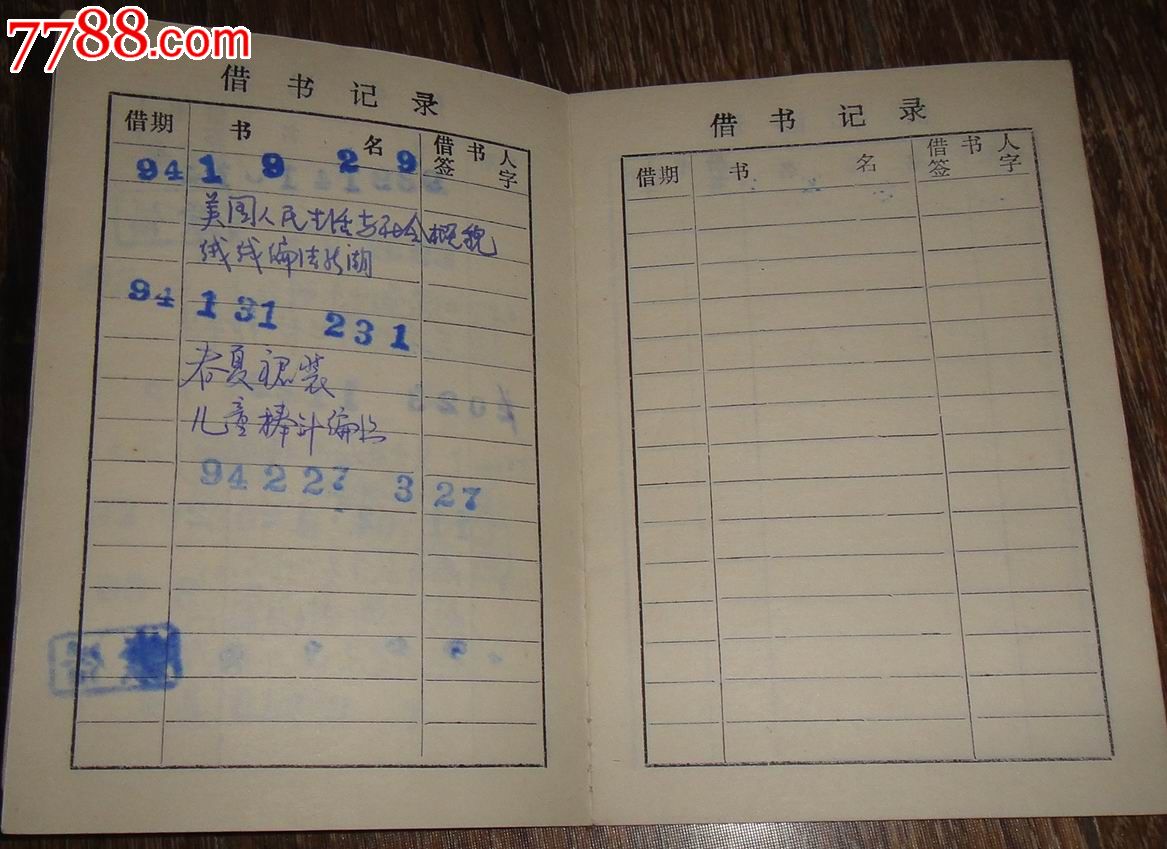 7788.com
借书记录
借期 书名 借书人签字
94 1 9 2 9
美国人民生活与社会概貌
绒线编法新潮
94 1 31 2 31
春夏裙装
儿童棒针编织
94 2 27 3 27
借书记录
借期 书名 借书人签字